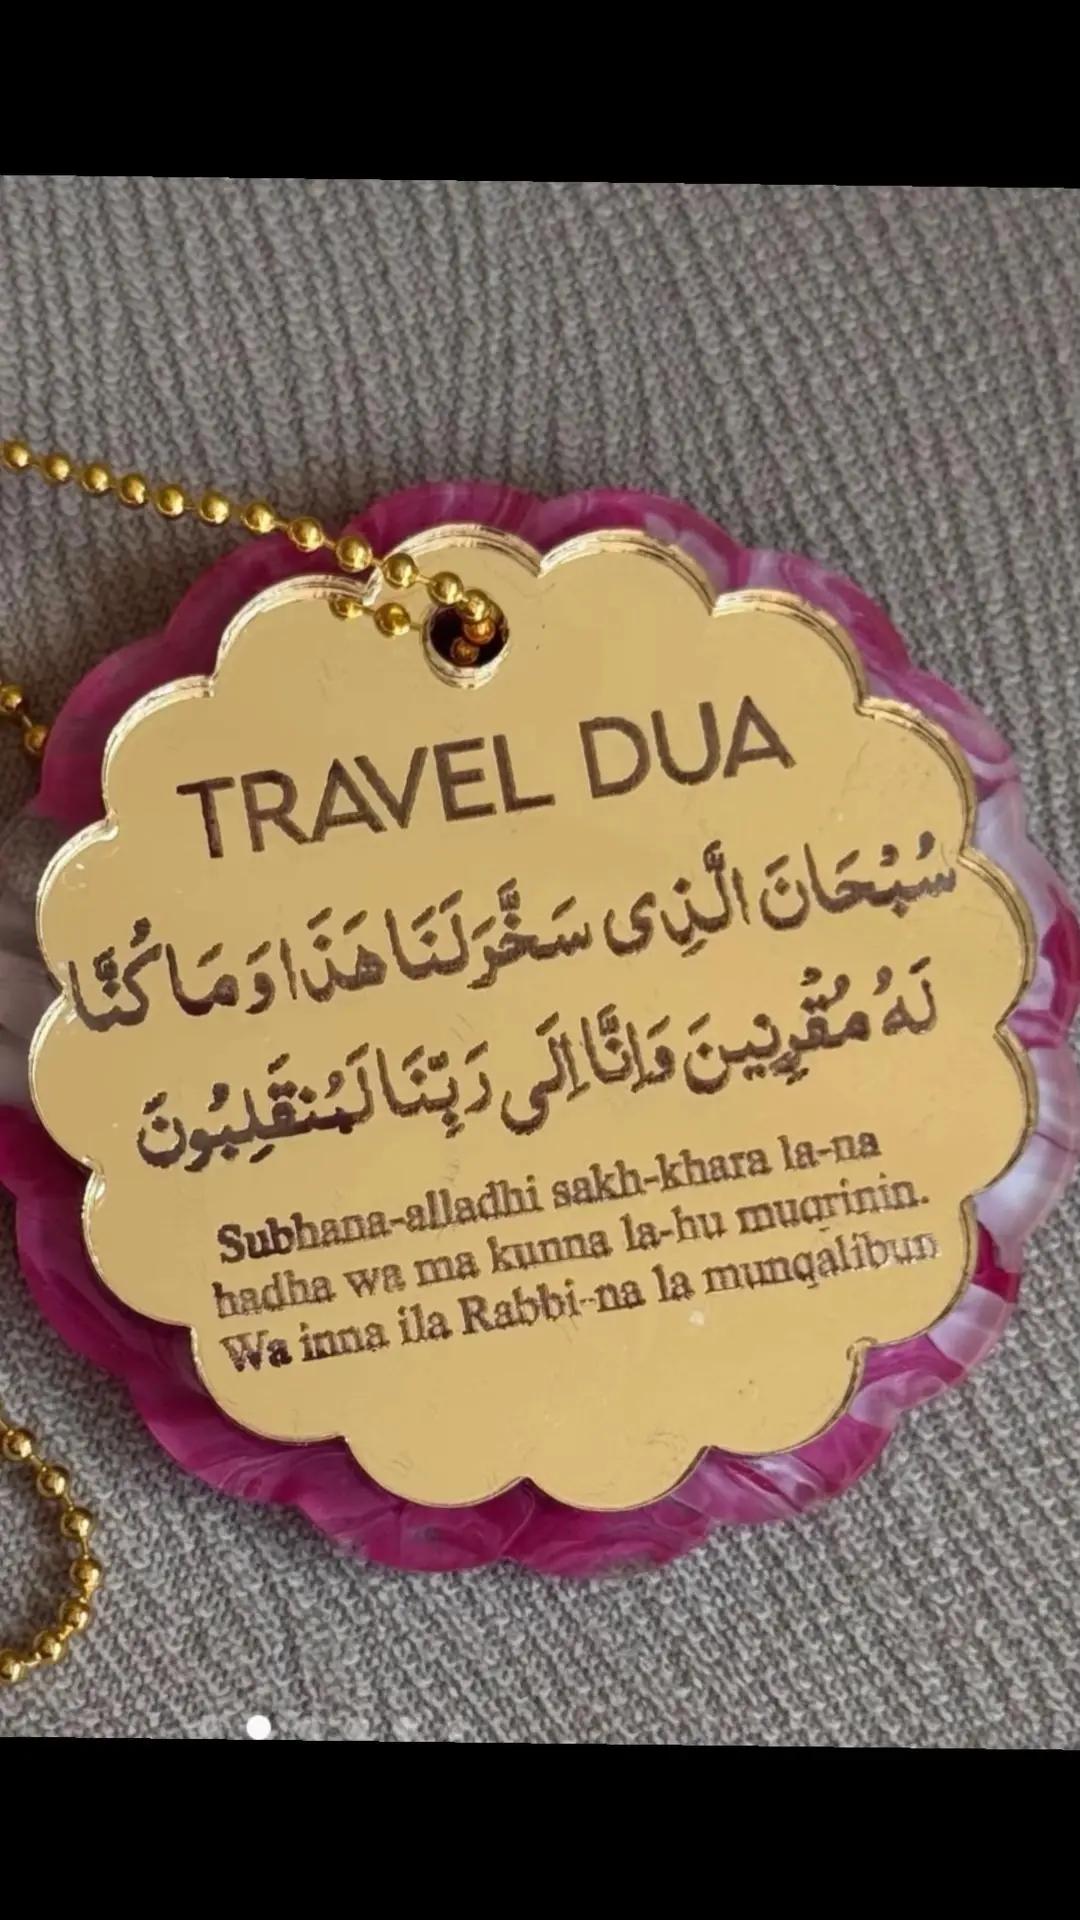 TRAVEL DUA
سُبْحَانَ الَّذِى سَخَّرَ لَنَا هَذَا وَمَا كُنَّا
لَهُ مُقْرِنِينَ وَإِنَّا إِلَى رَبِّنَا لَمُنْقَلِبُونَ
Subhana-alladhi sakh-khara la-na
hadha wa ma kunna la-hu muqrinin.
Wa inna ila Rabbi-na la munqalibun